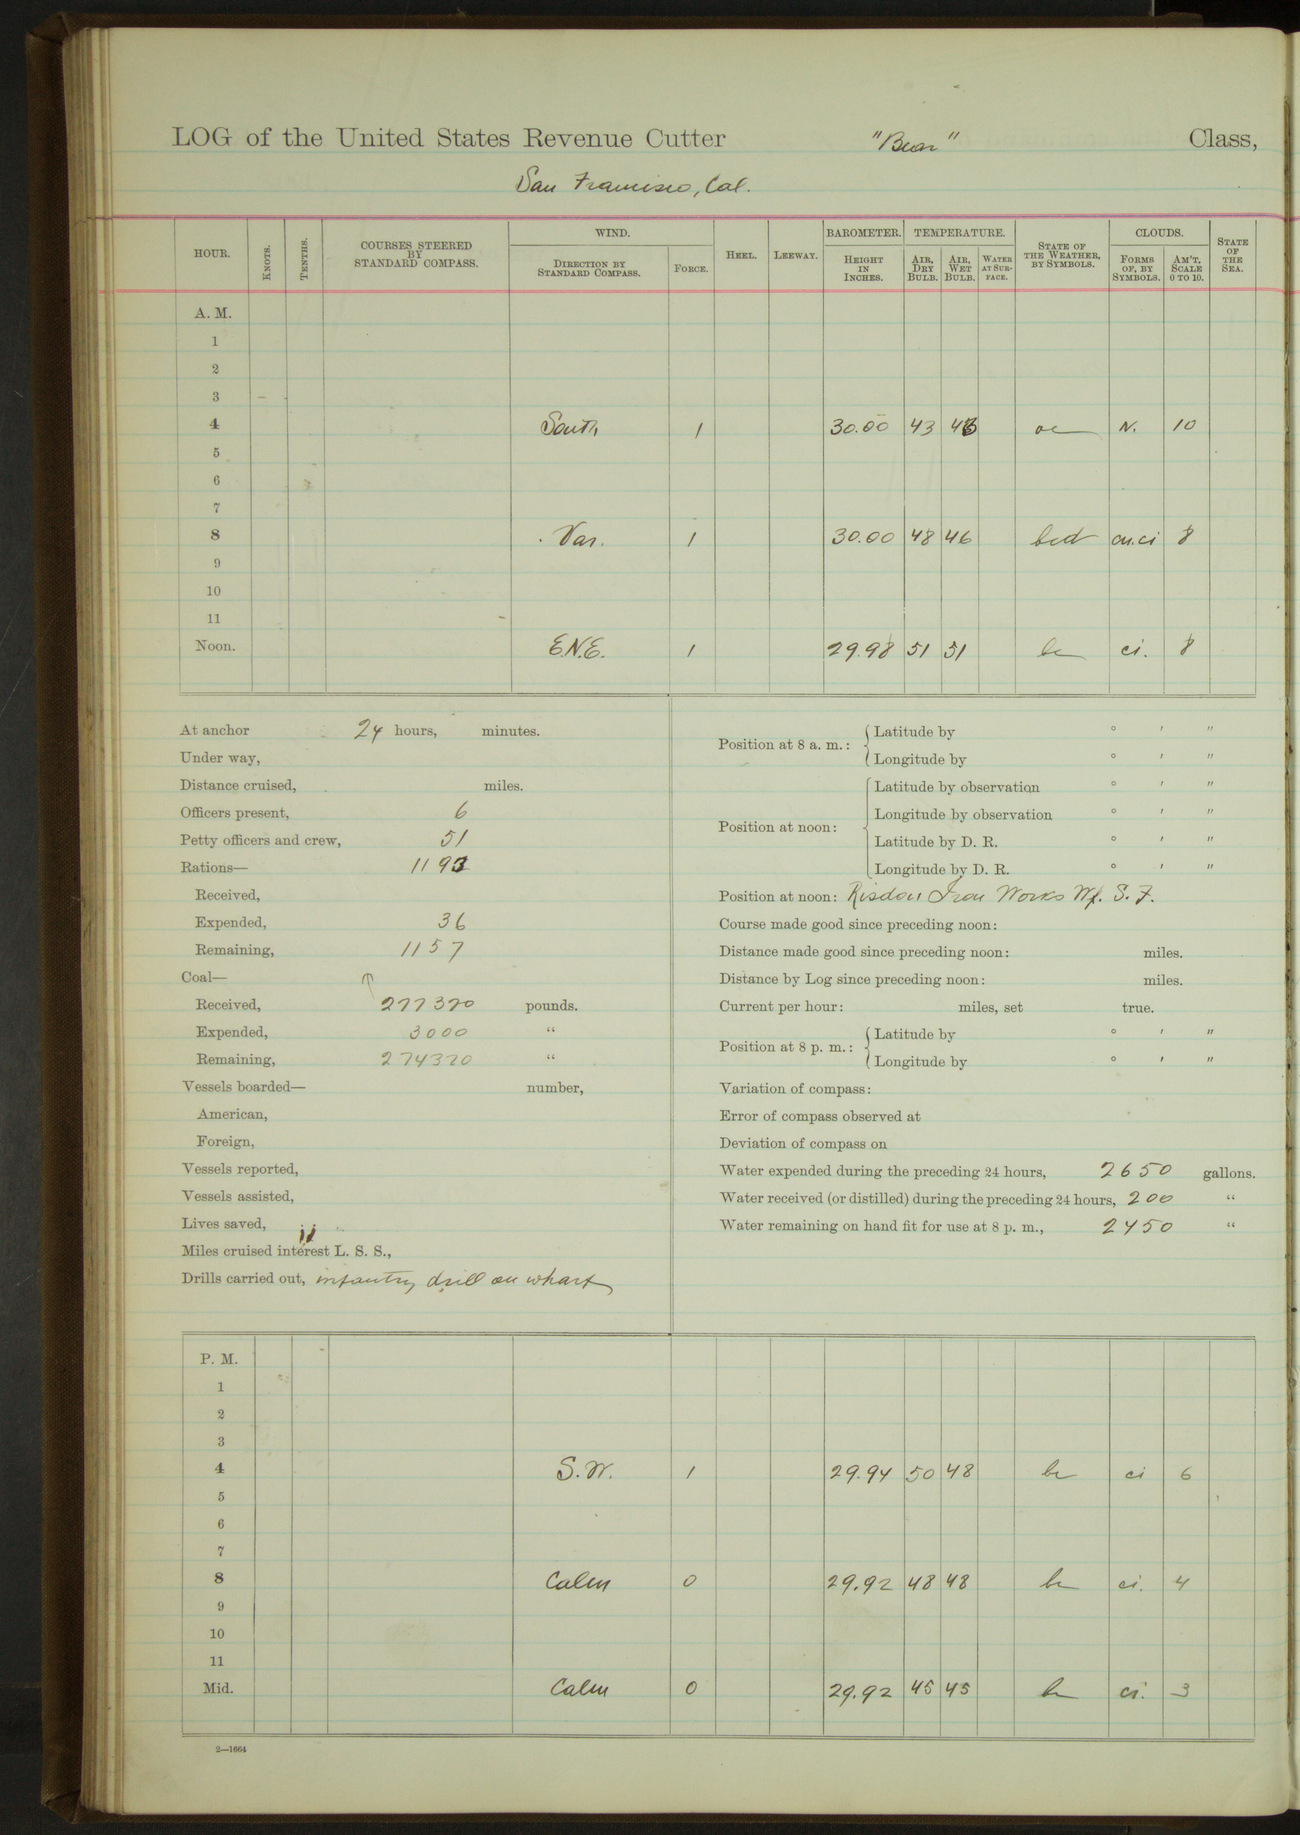 LOG of the United States Revenue Cutter "Bear" Class,
San Francisco, Cal.
HOUR. KNOTS. TENTHS. COURSES STEERED BY STANDARD COMPASS. WIND. DIRECTION BY STANDARD COMPASS. FORCE. HEEL. LEEWAY. BAROMETER. HEIGHT IN INCHES. TEMPERATURE. AIR, DRY BULB. AIR, WET BULB. WATER AT SURFACE. STATE OF THE WEATHER, BY SYMBOLS. CLOUDS. FORMS OF, BY SYMBOLS. AM'T, SCALE 0 TO 10. STATE OF THE SEA.
A. M.
1
2
3
4 South 1 30.00 43 43 oc N. 10
5
6
7
8 Var. 1 30.00 48 46 bcd cu.ci 8
9
10
11
Noon. E.N.E. 1 29.98 51 51 bc ci. 8
At anchor 24 hours, minutes.
Under way,
Distance cruised, miles.
Officers present, 6
Petty officers and crew, 51
Rations— 1193
Received,
Expended, 36
Remaining, 1157
Coal—
Received, 277320 pounds.
Expended, 3000 "
Remaining, 274320 "
Vessels boarded— number,
American,
Foreign,
Vessels reported,
Vessels assisted,
Lives saved,
Miles cruised interest L. S. S.,
Drills carried out, infantry drill on wharf
Position at 8 a. m.: Latitude by ° ' "
Longitude by ° ' "
Position at noon: Latitude by observation ° ' "
Longitude by observation ° ' "
Latitude by D. R. ° ' "
Longitude by D. R. ° ' "
Position at noon: Risdon Iron Works Wf. S. F.
Course made good since preceding noon:
Distance made good since preceding noon: miles.
Distance by Log since preceding noon: miles.
Current per hour: miles, set true.
Position at 8 p. m.: Latitude by ° ' "
Longitude by ° ' "
Variation of compass:
Error of compass observed at
Deviation of compass on
Water expended during the preceding 24 hours, 2650 gallons.
Water received (or distilled) during the preceding 24 hours, 200 "
Water remaining on hand fit for use at 8 p. m., 2450 "
P. M.
1
2
3
4 S.W. 1 29.94 50 48 bc ci 6
5
6
7
8 Calm 0 29.92 48 48 bc ci. 4
9
10
11
Mid. Calm 0 29.92 45 45 bc ci. 3
2—1664